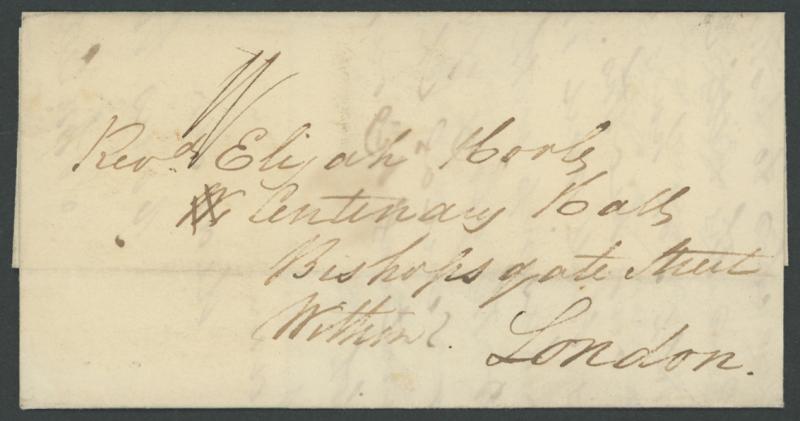 Revd. Elijah Hoole
Centenary Hall
Bishopsgate Street
Within.
London.